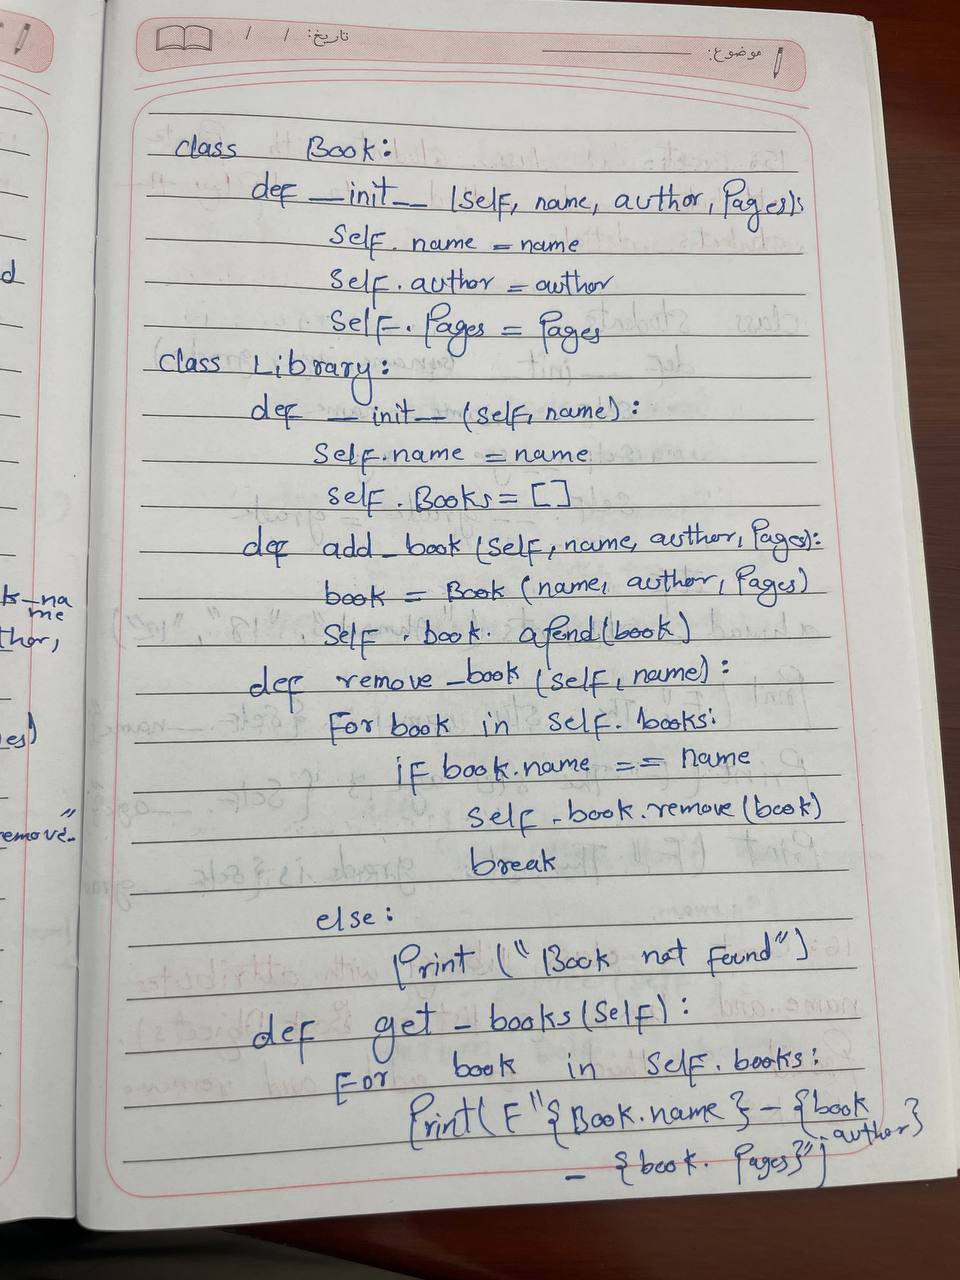 تاریخ: / /
موضوع:
class Book:
def __init__ (self, name, author, Pages):
self. name = name
self. author = author
self. Pages = Pages
class Library:
def __init__ (self, name):
self.name = name
self. Books = []
def add_book (self, name, author, Pages):
book = Book (name, author, Pages)
self . book. afend(book)
def remove_book (self, name):
For book in self. books:
if book.name == name
self .book.remove (book)
break
else:
Print ("Book not found")
def get_books(self):
For book in self. books:
Print(F"{Book.name} - {book
.author}
- {book. Pages}")
d
k_na
me
thor,
es)
remove"